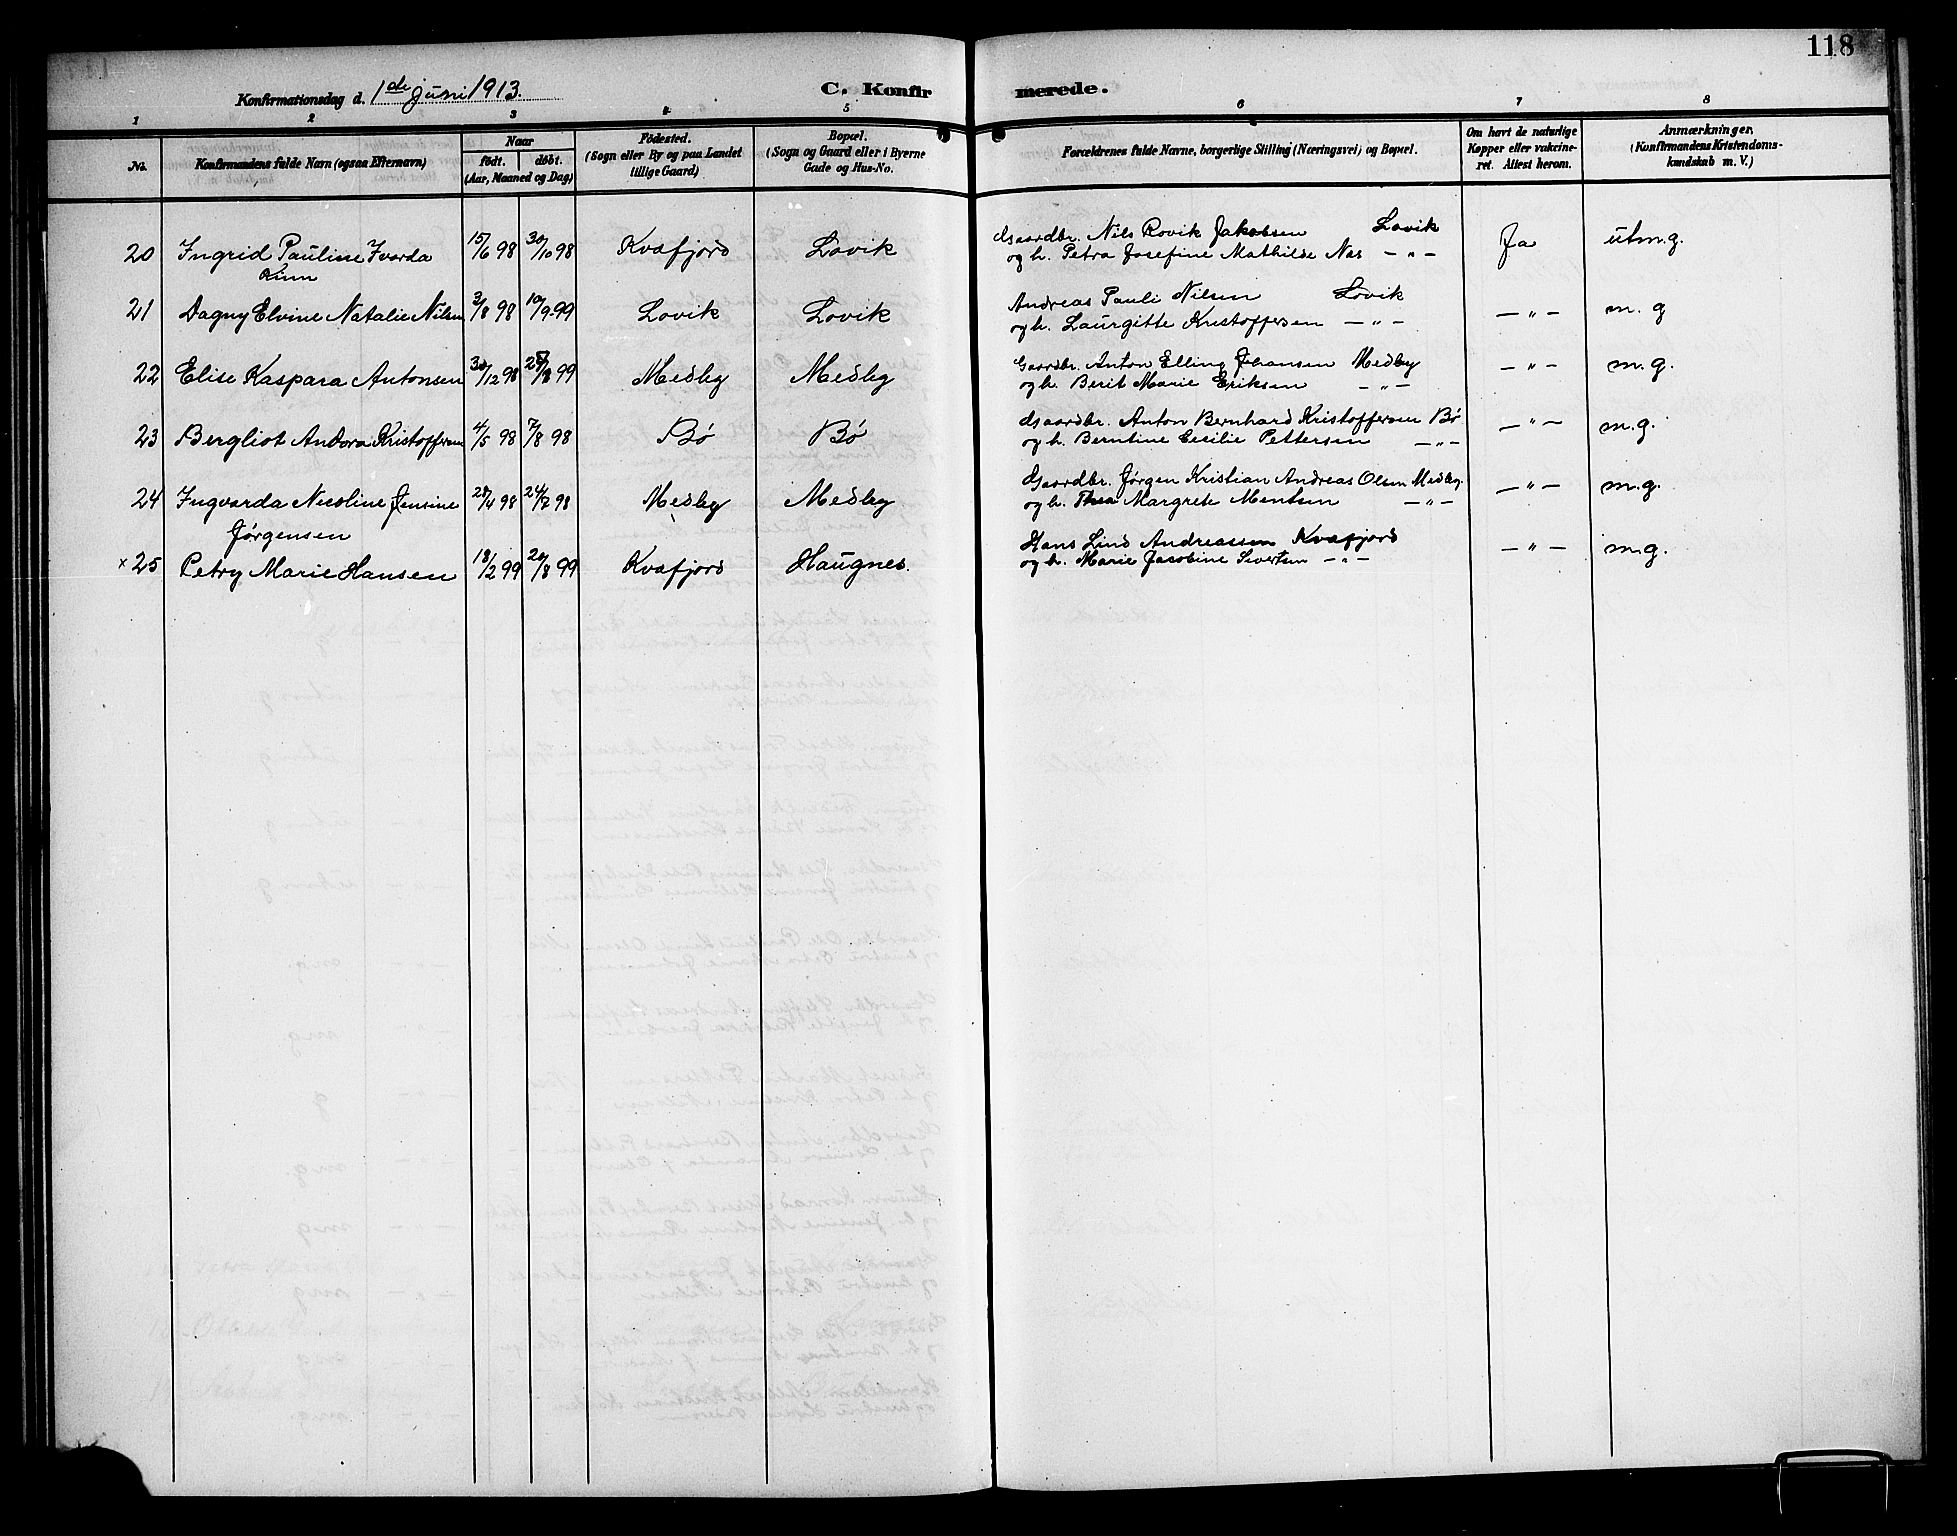 118
Konfirmationsdag d. 1ste Juni 1913.
C. Konfirmerede.
1 2 3 4 5 6 7 8
No.
Konfirmandens fulde Navn (ogsaa Efternavn)
Naar
født. døbt.
(Aar, Maaned og Dag)
Fødested.
(Sogn eller By og paa Landet
tillige Gaard)
Bopæl.
(Sogn og Gaard eller i Byerne
Gade og Hus-No.
Forældrenes fulde Navne, borgerlige Stilling (Næringsvei) og Bopæl.
Om havt de naturlige
Kopper eller vakcine-
ret. Attest herom.
Anmærkninger.
(Konfirmandens Kristendoms-
kundskab m. V.)
20 Ingrid Pauline Ivarda 15/6 98 30/10 98 Kvæfjord Lovik Gaardbr. Nils Rovik Jakobsen Lovik Ja utm.g.
og h. Petra Josefine Mathilde Nas — " —
21 Dagny Elvine Natalie Nilsen 3/8 98 10/9 99 Lovik Lovik Andreas Pauli Nilsen Lovik — " — m.g
og h. Laurgitte Kristoffersen — " —
22 Elise Kaspara Antonsen 30/12 98 /8 99 Medby Medby Gaardbr. Anton Elling Johansen Medby — " — m.g.
og h. Berit Marie Eriksen — " —
23 Bergliot Andora Kristoffersen 4/5 98 7/8 98 Bø Bø Gaardbr. Anton Bernhard Kristoffersen Bø — " — m.g.
og h. Berntine Cecilie Pettersen — " —
24 Ingvarda Nicoline Jensine 28/4 98 24/7 98 Medby Medby Gaardbr. Jørgen Kristian Andreas Olsen Medby — " — m.g.
Jørgensen og h. Thea Margrete Mentsen — " —
x 25 Petry Marie Hansen 18/2 99 20/8 99 Kvæfjord Haugnes. Hans Lind Andreassen Kvæfjord — " — m.g.
og h. Marie Jacobine Sivertsen — " —